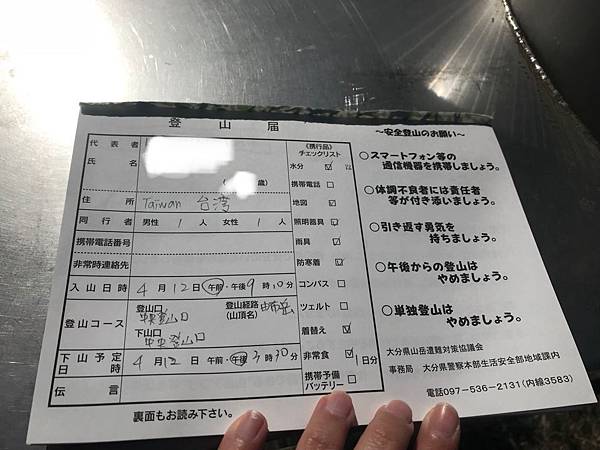 登山届
代表者
氏名
(歳)
住所 Taiwan 台湾
同行者 男性 1 人 女性 1 人
携帯電話番号
非常時連絡先
入山日時 4月12日 午前・午後9時10分
登山コース
登山口
中央登山口
登山経路
(山頂名)
由布岳
下山口
中央登山口
下山予定
日時
4月12日 午前・午後3時30分
伝言
(携行品)
チェックリスト
水分
携帯電話
地図
照明器具
雨具
防寒着
コンパス
ツェルト
着替え
非常食 1日分
携帯予備
バッテリー
裏面もお読み下さい。
~安全登山のお願い~
○スマートフォン等の
通信機器を携帯しましょう。
○体調不良者には責任者
等が付き添いましょう。
○引き返す勇気を
持ちましょう。
○午後からの登山は
やめましょう。
○単独登山は
やめましょう。
大分県山岳遭難対策協議会
事務局 大分県警察本部生活安全部地域課内
電話097-536-2131(内線3583)